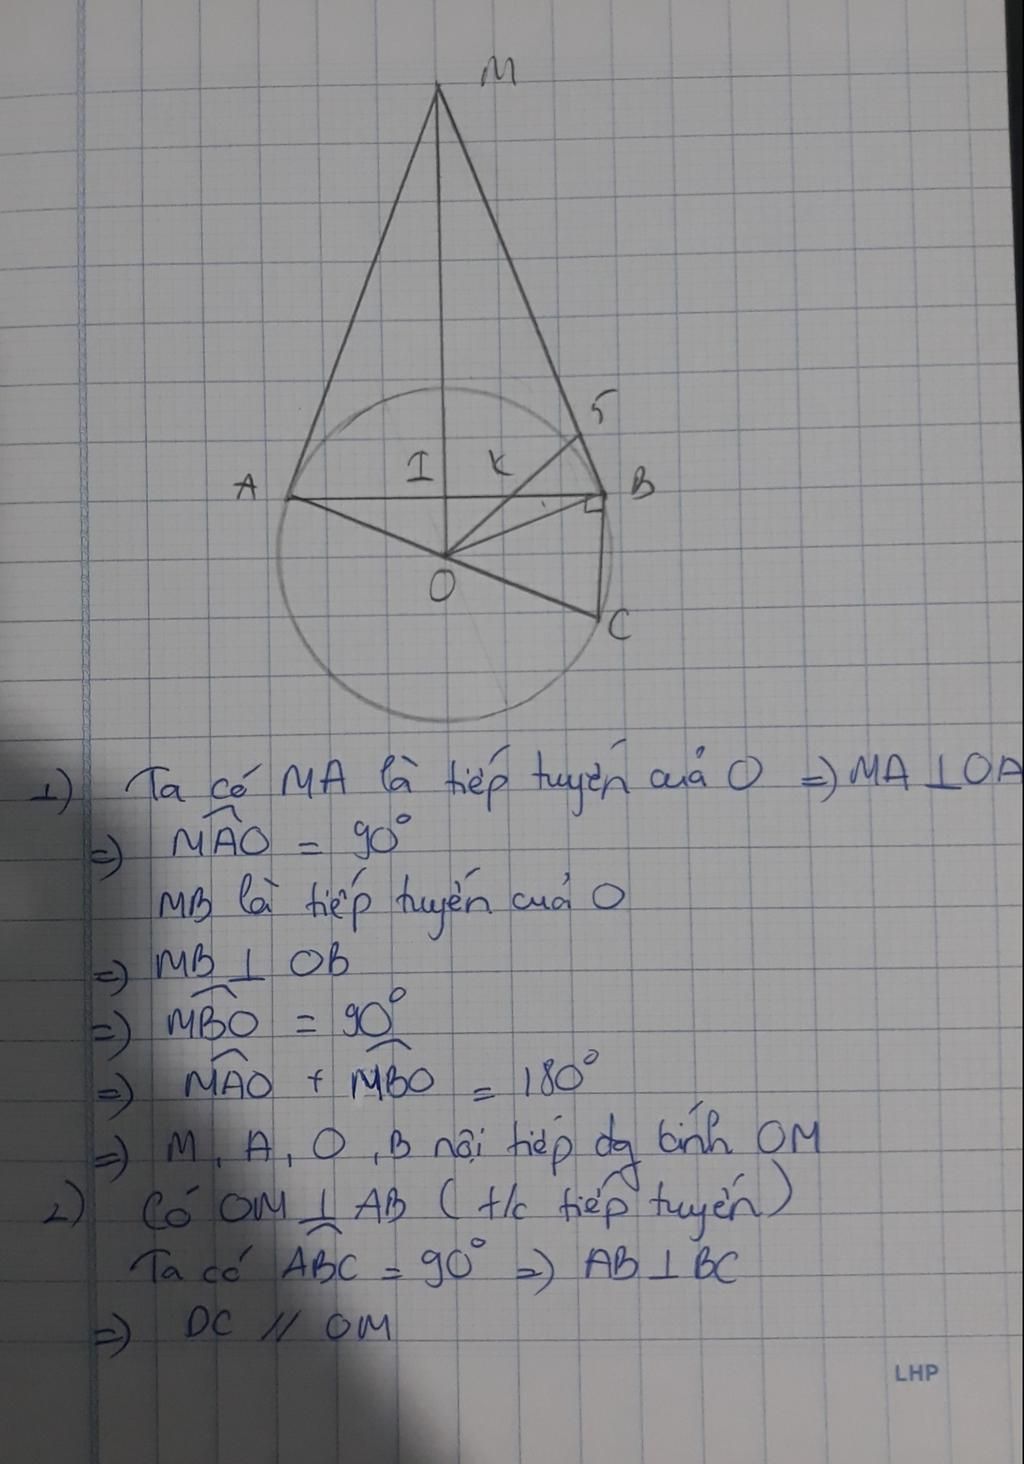 M
S
A I K B
O
C
1) Ta có MA là tiếp tuyến của O => MA ⊥ OA
=> MÂO = 90°
MB là tiếp tuyến của O
=> MB ⊥ OB
=> MB̂O = 90°
=> MÂO + MB̂O = 180°
=> M, A, O, B nội tiếp đg kính OM
2) Có OM ⊥ AB ( t/c tiếp tuyến )
Ta có AB̂C = 90° => AB ⊥ BC
=> DC // OM
LHP